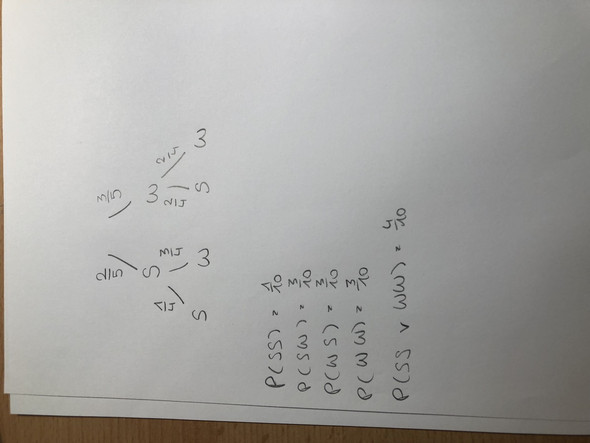 2/5 3/5
S W
1/4 3/4 2/4 2/4
S W S W
P(SS) = 1/10
P(SW) = 3/10
P(WS) = 3/10
P(WW) = 3/10
P(SS ∨ WW) = 4/10